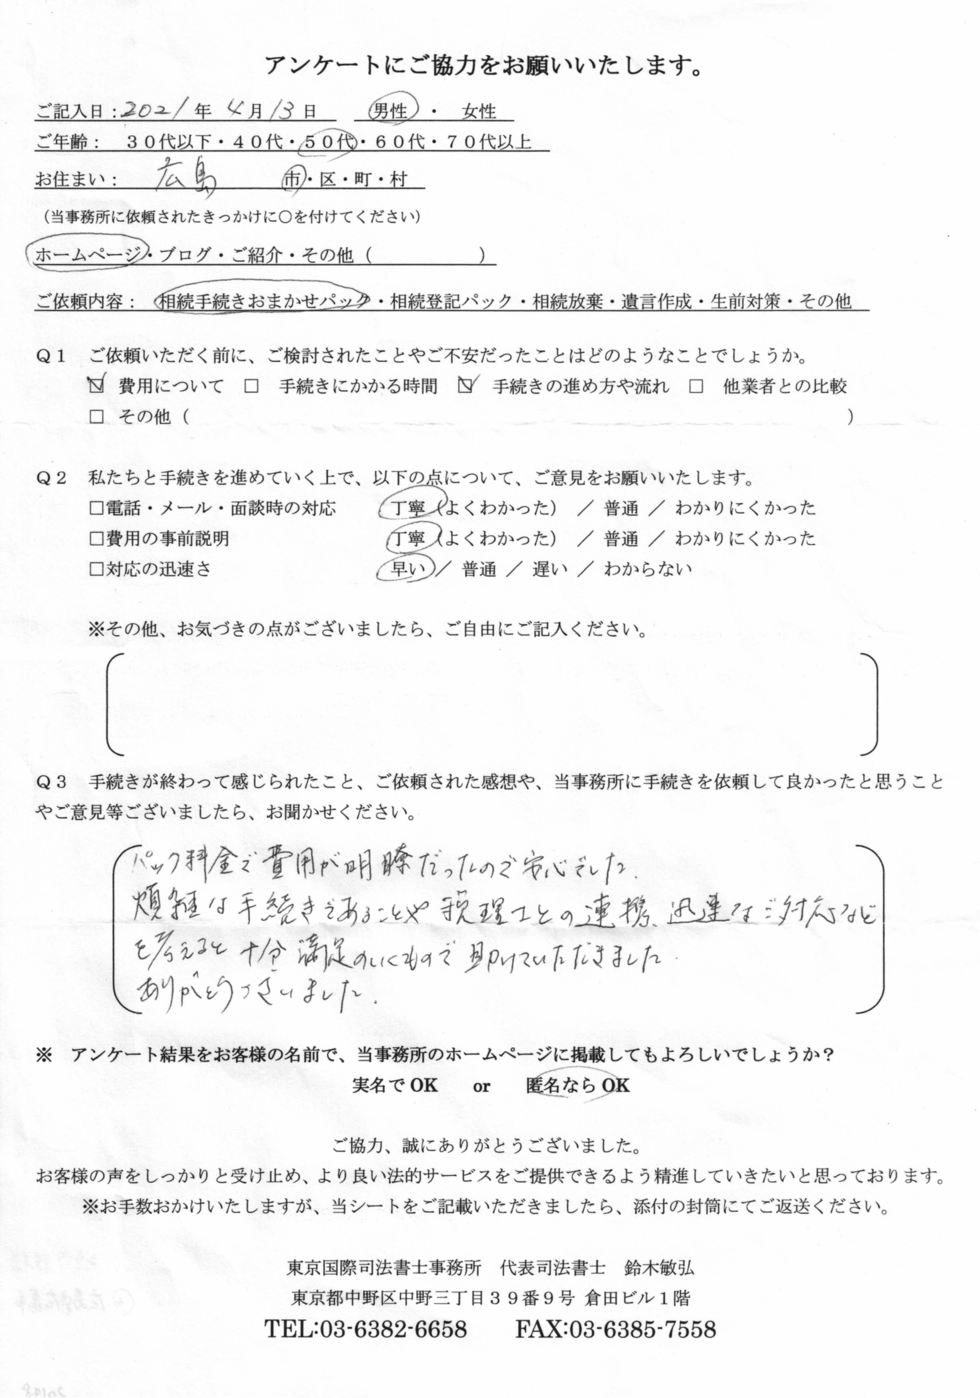 アンケートにご協力をお願いいたします。
ご記入日：2021年 4月13日　男性 ・ 女性
ご年齢：　３０代以下・４０代・５０代・６０代・７０代以上
お住まい：　広島　市・区・町・村
（当事務所に依頼されたきっかけに○を付けてください）
ホームページ・ブログ・ご紹介・その他（　　　　　　）
ご依頼内容：　相続手続きおまかせパック・相続登記パック・相続放棄・遺言作成・生前対策・その他
Ｑ１　ご依頼いただく前に、ご検討されたことやご不安だったことはどのようなことでしょうか。
☑ 費用について　□ 手続きにかかる時間　☑ 手続きの進め方や流れ　□ 他業者との比較
□ その他（　　　　　　　　　　　　　　　　　　　　）
Ｑ２　私たちと手続きを進めていく上で、以下の点について、ご意見をお願いいたします。
□電話・メール・面談時の対応　丁寧（よくわかった） ／ 普通 ／ わかりにくかった
□費用の事前説明　丁寧（よくわかった） ／ 普通 ／ わかりにくかった
□対応の迅速さ　早い／ 普通 ／ 遅い ／ わからない
※その他、お気づきの点がございましたら、ご自由にご記入ください。
Ｑ３　手続きが終わって感じられたこと、ご依頼された感想や、当事務所に手続きを依頼して良かったと思うこと
やご意見等ございましたら、お聞かせください。
パック料金で費用が明瞭だったので安心でした.
煩雑な手続きであることや税理士との連携、迅速なご対応など
を考えると十分満足のいくもので助けていただきました.
ありがとうございました.
※　アンケート結果をお客様の名前で、当事務所のホームページに掲載してもよろしいでしょうか？
実名でOK　or　匿名ならOK
ご協力、誠にありがとうございました。
お客様の声をしっかりと受け止め、より良い法的サービスをご提供できるよう精進していきたいと思っております。
※お手数おかけいたしますが、当シートをご記載いただきましたら、添付の封筒にてご返送ください。
東京国際司法書士事務所　代表司法書士　鈴木敏弘
東京都中野区中野三丁目３９番９号 倉田ビル１階
TEL:03-6382-6658　FAX:03-6385-7558